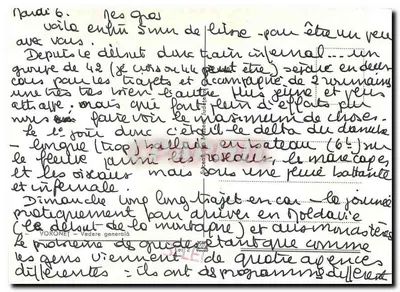 Mardi 6. Mes gros
Voilà enfin 5 mn de libre pour être un peu
avec vous.
Depuis le début donc train infernal... un
groupe de 42 (je crois ou 44 peut être) séparé en deux
cars pour les trajets et accompagné de 2 roumains
une très très bien l'autre plus jeune et plus
effacé, mais qui font plein d'efforts pour
nous faire voir le maximum de choses.
Le 1er jour donc c'était le delta du danube
longue (trop) ballade en bateau (6h) sur
le fleuve parmi les roseaux, les marécages
et les oiseaux mais sous une pluie battante
et infernale.
Dimanche long long trajet en car - la journée
pratiquement pour arriver en Moldavie
(le début de la montagne) et aux monastères
VORONEȚ - Vedere generală
le problème des guides étant que comme
les gens viennent de quatre agences
différentes : ils ont des programmes différents